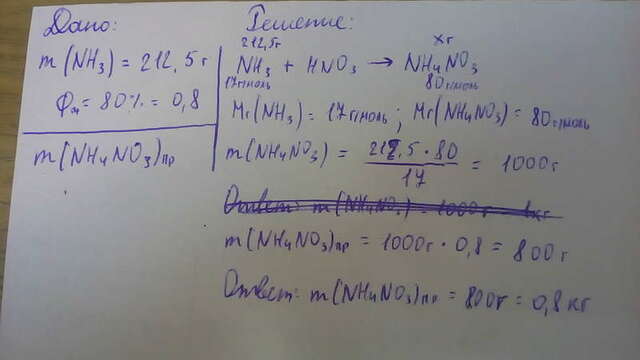 Дано:
m(NH₃) = 212,5 г
φₘ = 80% = 0,8
m(NH₄NO₃)пр
Решение:
212,5г xг
NH₃ + HNO₃ → NH₄NO₃
17г/моль 80г/моль
Mr(NH₃) = 17г/моль; Mr(NH₄NO₃) = 80г/моль
m(NH₄NO₃) = 212,5 · 80 / 17 = 1000г
Ответ: m(NH₄NO₃) = 1000г = 1кг
m(NH₄NO₃)пр = 1000г · 0,8 = 800г
Ответ: m(NH₄NO₃)пр = 800г = 0,8 кг